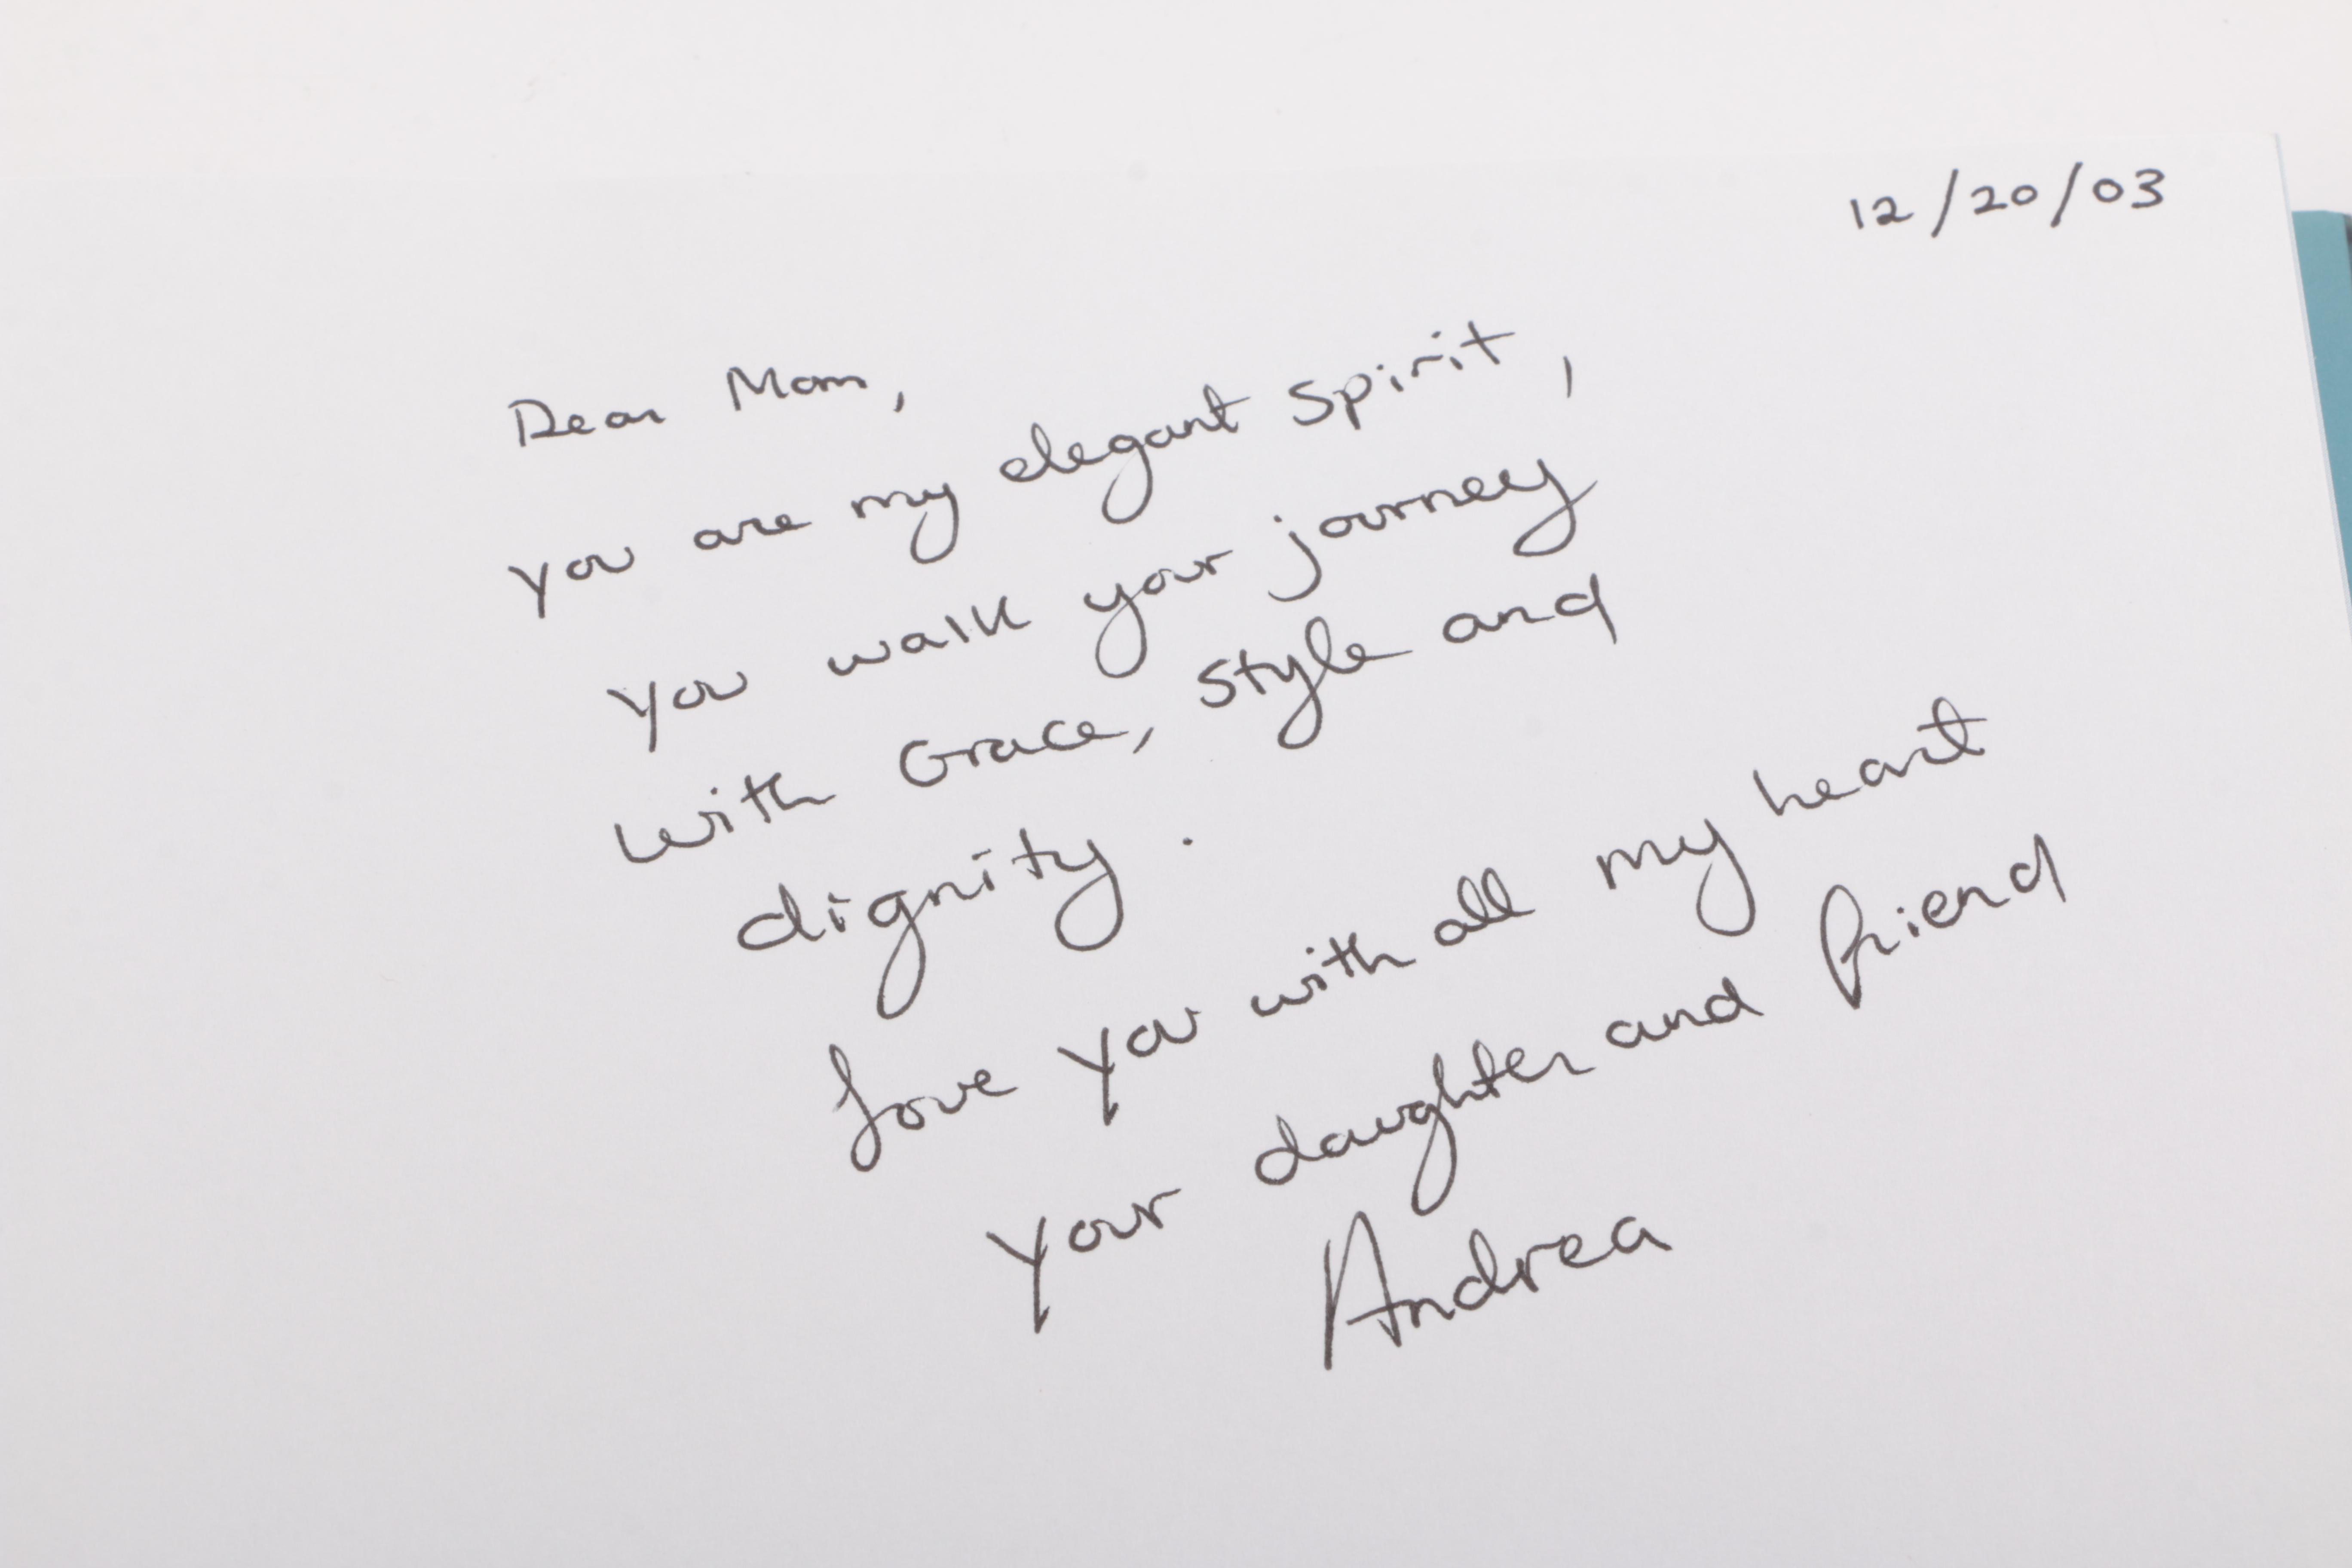 12/20/03
Dear Mom,
you are my elegant spirit,
you walk your journey
with Grace, style and
dignity.
Love you with all my heart
your daughter and friend
Andrea